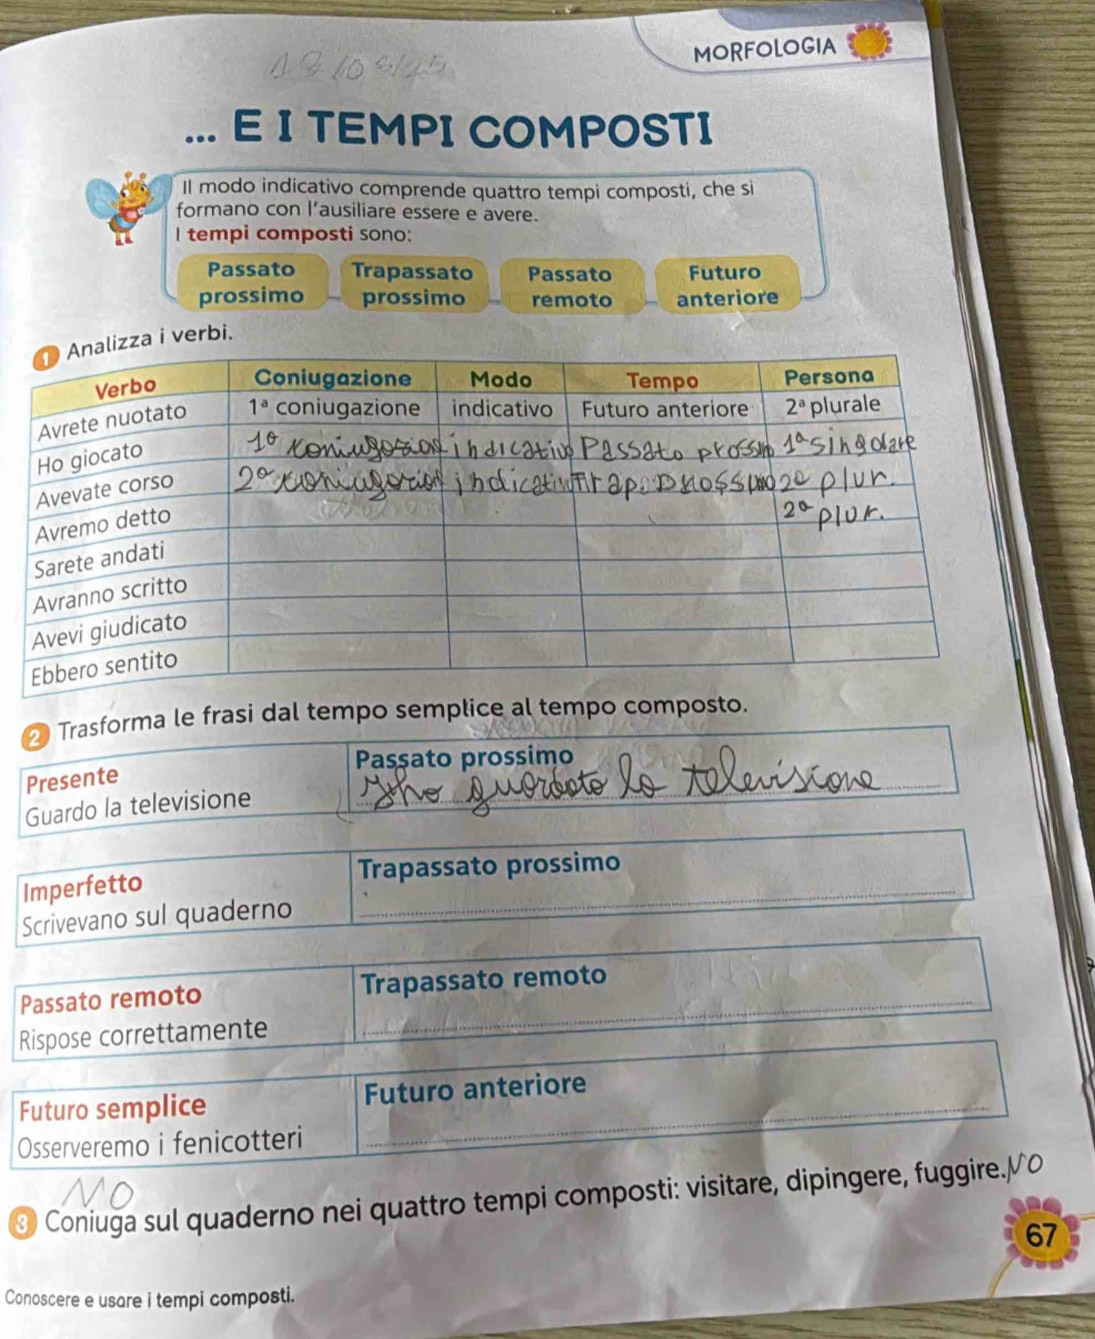 MORFOLOGIA
... E I TEMPI COMPOSTI
Il modo indicativo comprende quattro tempi composti, che si
formano con l'ausiliare essere e avere.
I tempi composti sono:
Passato prossimo Trapassato prossimo Passato remoto Futuro anteriore
1 Analizza i verbi.
Verbo Coniugazione Modo Tempo Persona
Avrete nuotato 1ª coniugazione indicativo Futuro anteriore 2ª plurale
Ho giocato 1ª coniugazione indicativo Passato prossimo 1ª singolare
Avevate corso 2ª coniugazione indicativo Trap. prossimo 2ª plur.
Avremo detto 2ª plur.
Sarete andati
Avranno scritto
Avevi giudicato
Ebbero sentito
2 Trasforma le frasi dal tempo semplice al tempo composto.
Presente Passato prossimo
Guardo la televisione ho guardato la televisione
Imperfetto Trapassato prossimo
Scrivevano sul quaderno
Passato remoto Trapassato remoto
Rispose correttamente
Futuro semplice Futuro anteriore
Osserveremo i fenicotteri
NO
3 Coniuga sul quaderno nei quattro tempi composti: visitare, dipingere, fuggire. NO
67
Conoscere e usare i tempi composti.